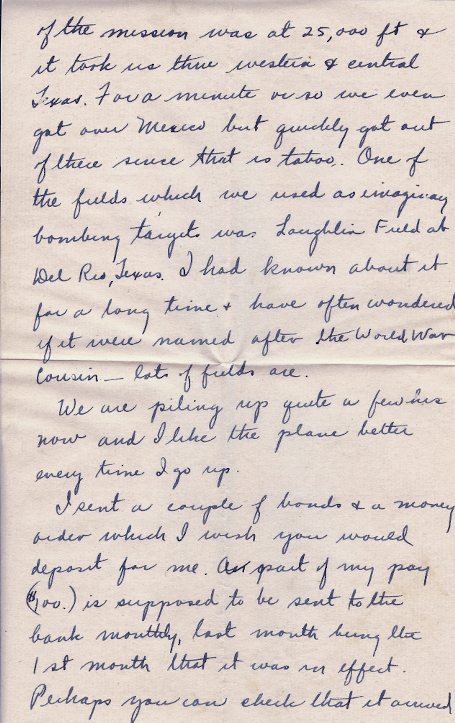 of the mission was at 25,000 ft &
it took us thru western & central
Texas. For a minute or so we even
got over Mexico but quickly got out
of there since that is taboo. One of
the fields which we used as imaginary
bombing targets was Laughlin Field at
Del Rio, Texas. I had known about it
for a long time & have often wondered
if it were named after the World War
Cousin — lots of fields are.
We are piling up quite a few hrs
now and I like the plane better
every time I go up.
I sent a couple of bonds & a money
order which I wish you would
deposit for me. Also part of my pay
($100.) is supposed to be sent to the
bank monthly, last month being the
1st month that it was in effect.
Perhaps you can check that it arrived